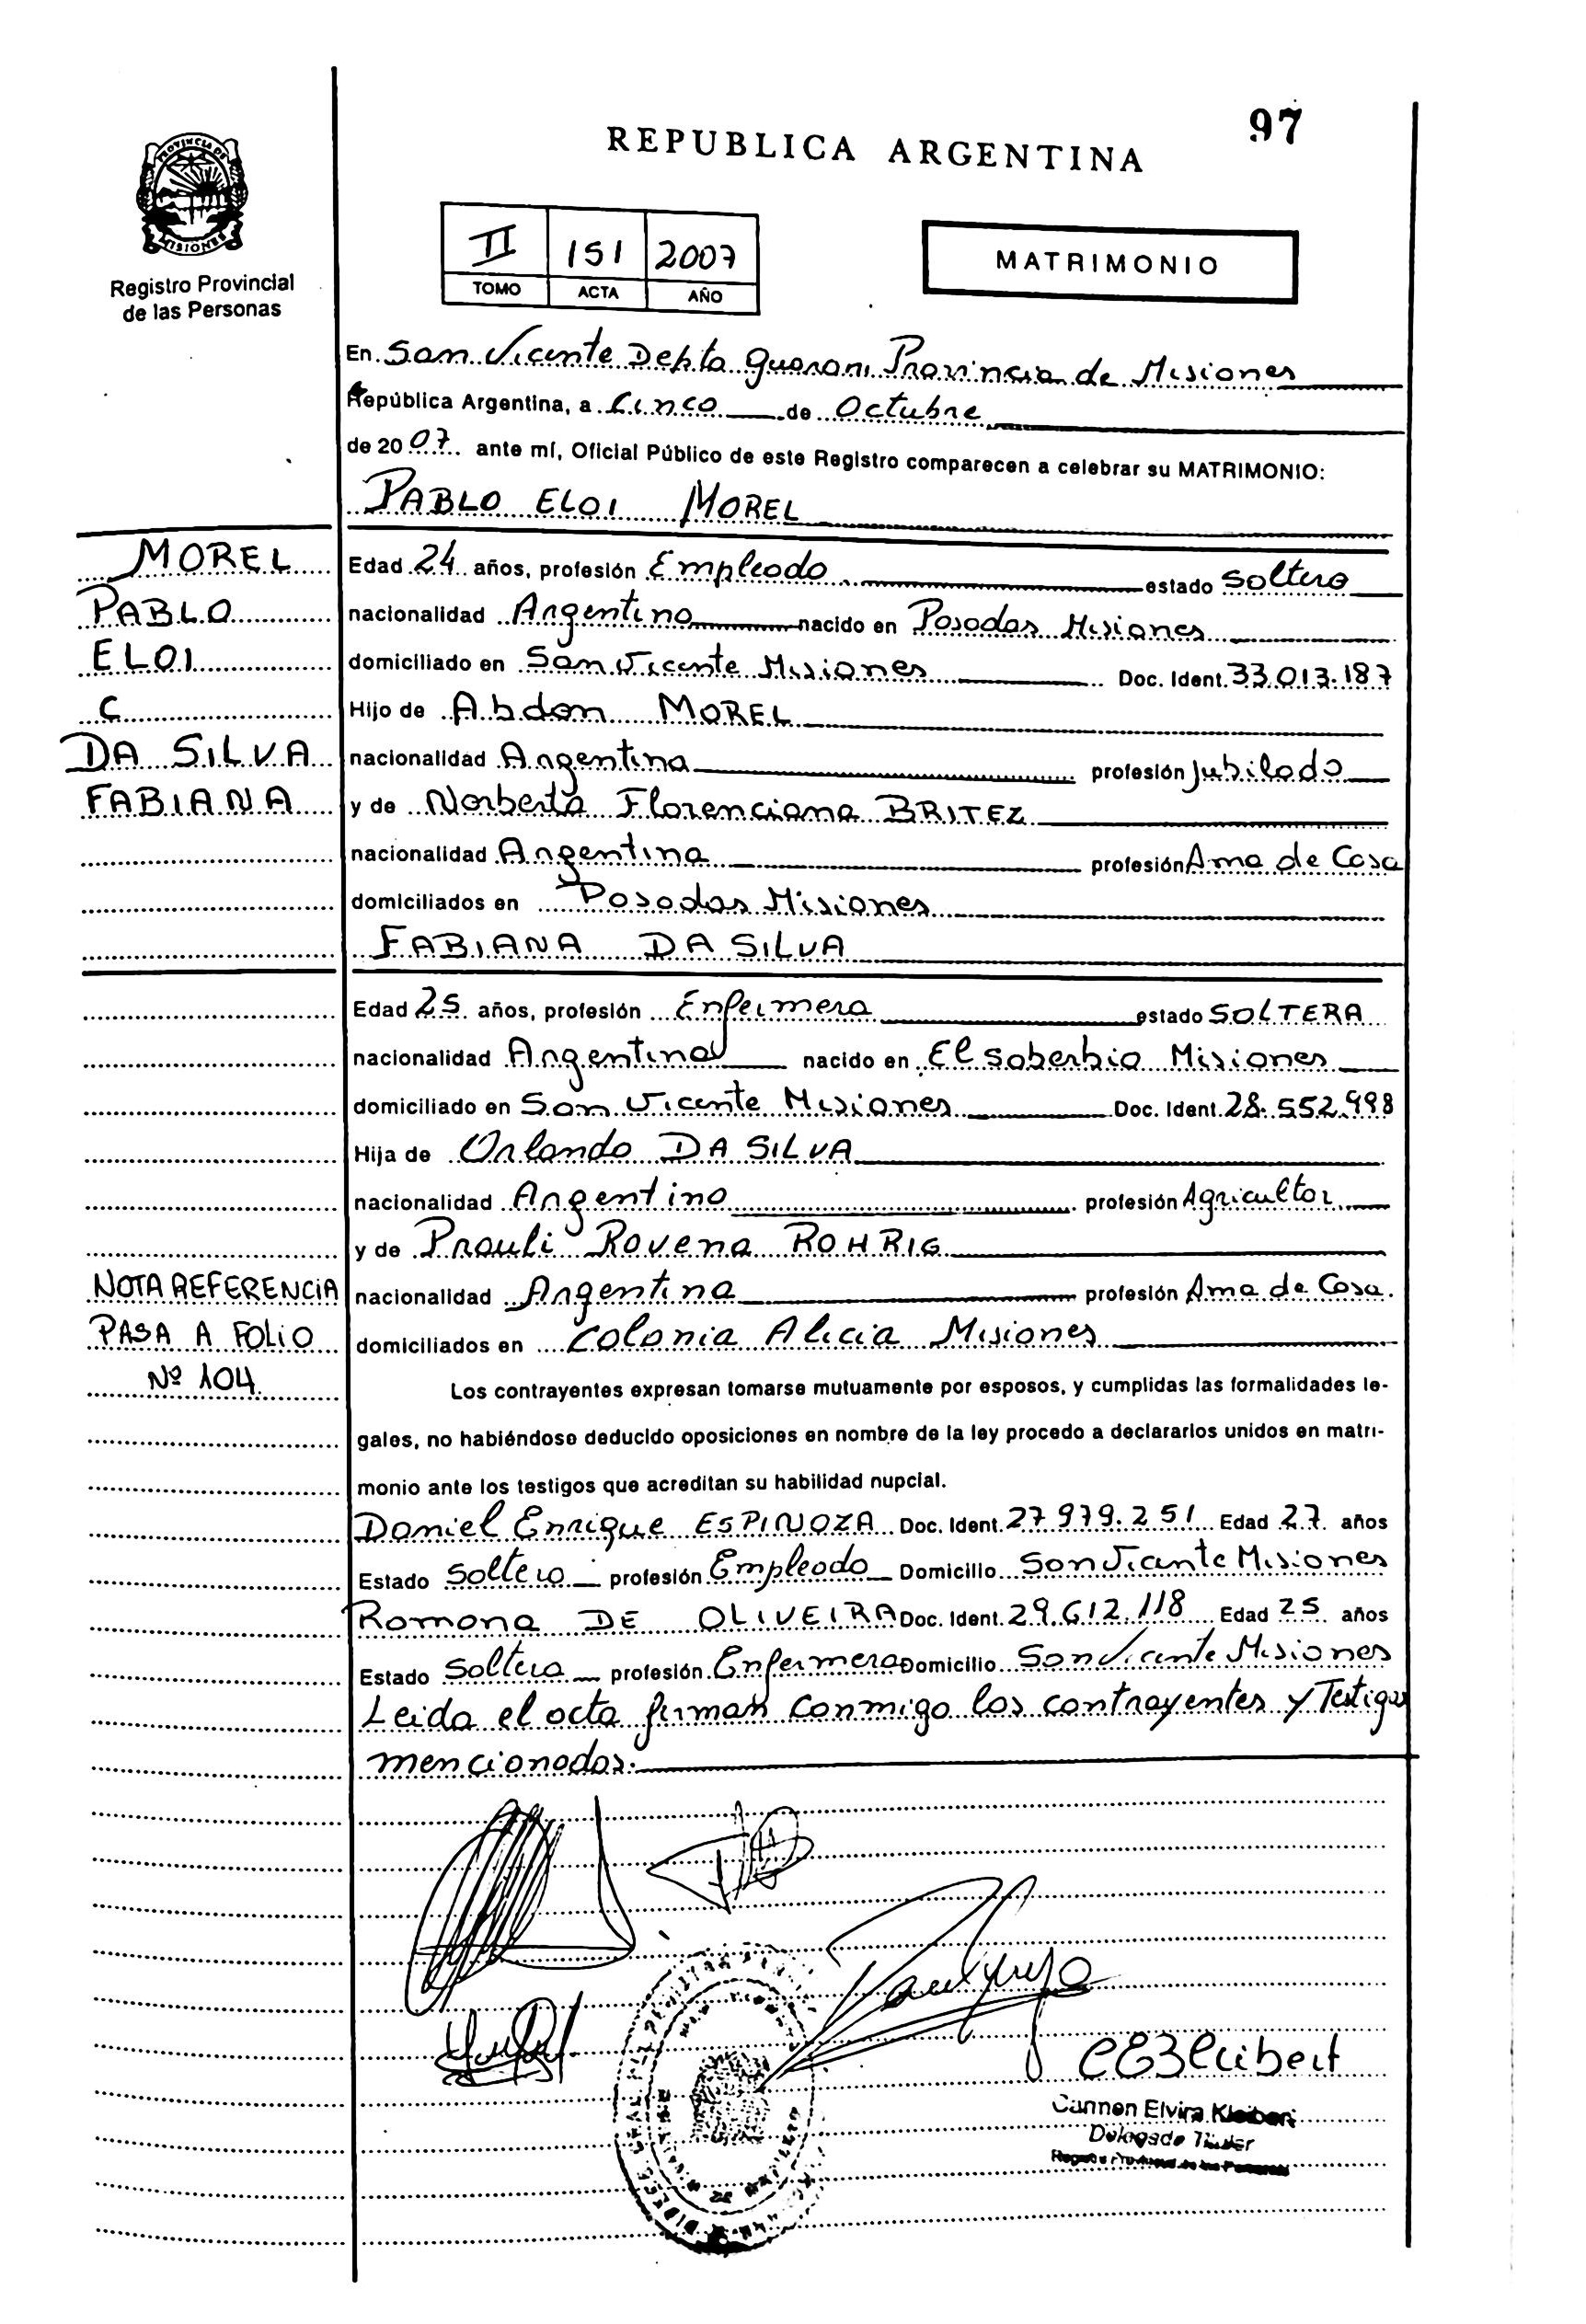 97
REPUBLICA ARGENTINA
PROVINCIA DE
MISIONES
Registro Provincial
de las Personas
II 151 2007
TOMO ACTA AÑO
MATRIMONIO
En San Vicente Depto Guarani Provincia de Misiones
República Argentina, a Cinco de Octubre
de 2007 ante mí, Oficial Público de este Registro comparecen a celebrar su MATRIMONIO:
PABLO ELOI MOREL
MOREL
PABLO
ELOI
C
DA SILVA
FABIANA
Edad 24 años, profesión Empleado estado Soltero
nacionalidad Argentino nacido en Posadas Misiones
domiciliado en San Vicente Misiones Doc. Ident. 33.013.187
Hijo de Abdon MOREL
nacionalidad Argentina profesión Jubilado
y de Norberta Florenciana BRITEZ
nacionalidad Argentina profesión Ama de Casa
domiciliados en Posadas Misiones
FABIANA DA SILVA
Edad 25 años, profesión Enfermera estado SOLTERA
nacionalidad Argentina nacido en El soberbio Misiones
domiciliado en San Vicente Misiones Doc. Ident. 28.552.998
Hija de Orlando DA SILVA
nacionalidad Argentino profesión Agricultor
y de Prauli Rovena ROHRIG
nacionalidad Argentina profesión Ama de Casa.
domiciliados en Colonia Alicia Misiones
NOTA REFERENCIA
PASA A FOLIO
Nº 104
Los contrayentes expresan tomarse mutuamente por esposos, y cumplidas las formalidades le-
gales, no habiéndose deducido oposiciones en nombre de la ley procedo a declararlos unidos en matri-
monio ante los testigos que acreditan su habilidad nupcial.
Daniel Enrique ESPINOZA Doc. Ident. 27.979.251 Edad 27 años
Estado Soltero profesión Empleado Domicilio San Vicente Misiones
Ramona DE OLIVEIRA Doc. Ident. 29.612.118 Edad 25 años
Estado Soltera profesión Enfermera Domicilio San Vicente Misiones
Leida el acta firman conmigo los contrayentes y Testigos
mencionados.
Carmen Elvira Kleibert
Delegado Titular
Registro Provincial de las Personas